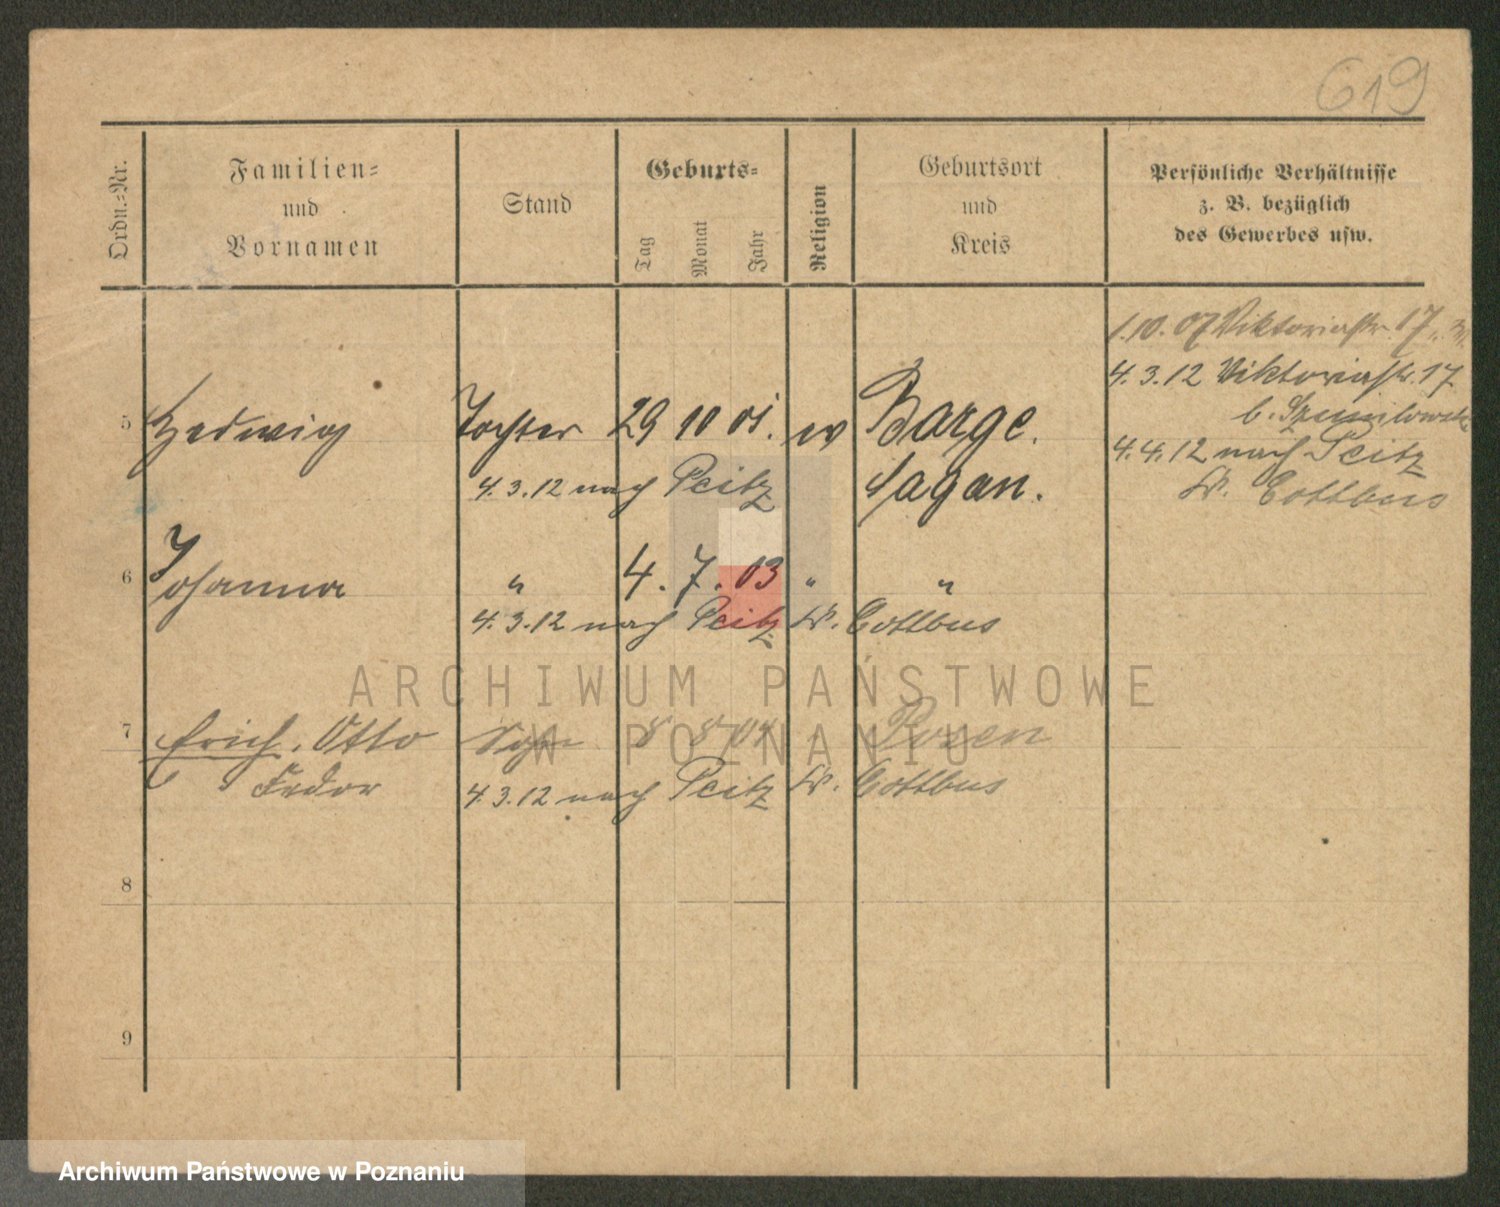 619
Ordn.-Nr.
Familien-
und
Vornamen
Stand
Geburts-
Tag
Monat
Jahr
Religion
Geburtsort
und
Kreis
Persönliche Verhältnisse
z. B. bezüglich
des Gewerbes usw.
1.10.07 Viktoriastr. 17
4.3.12 Viktoriastr. 17
b.
4.4.12 nach Peitz
Kr. Cottbus
5 Hedwig Tochter 29 10 01. ev Barge.
4.3.12 nach Peitz Sagan.
6 Johanna " 4. 7. 03 " "
4.3.12 nach Peitz Kr. Cottbus
7 Erich, Otto Sohn 8 8 Posen
Fedor 4.3.12 nach Peitz Kr. Cottbus
8
9
ARCHIWUM PAŃSTWOWE
W POZNANIU
Archiwum Państwowe w Poznaniu